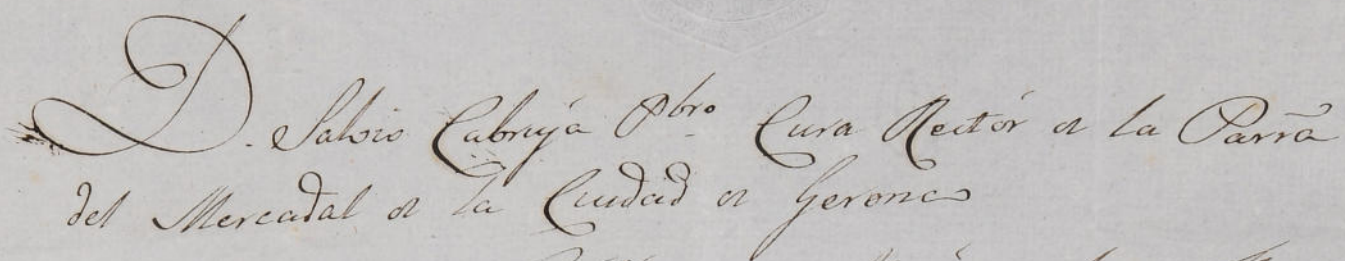 D. Salvio Cabruja Pbro. Cura Rector de la Parra
del Mercadal de la Ciudad de Gerona